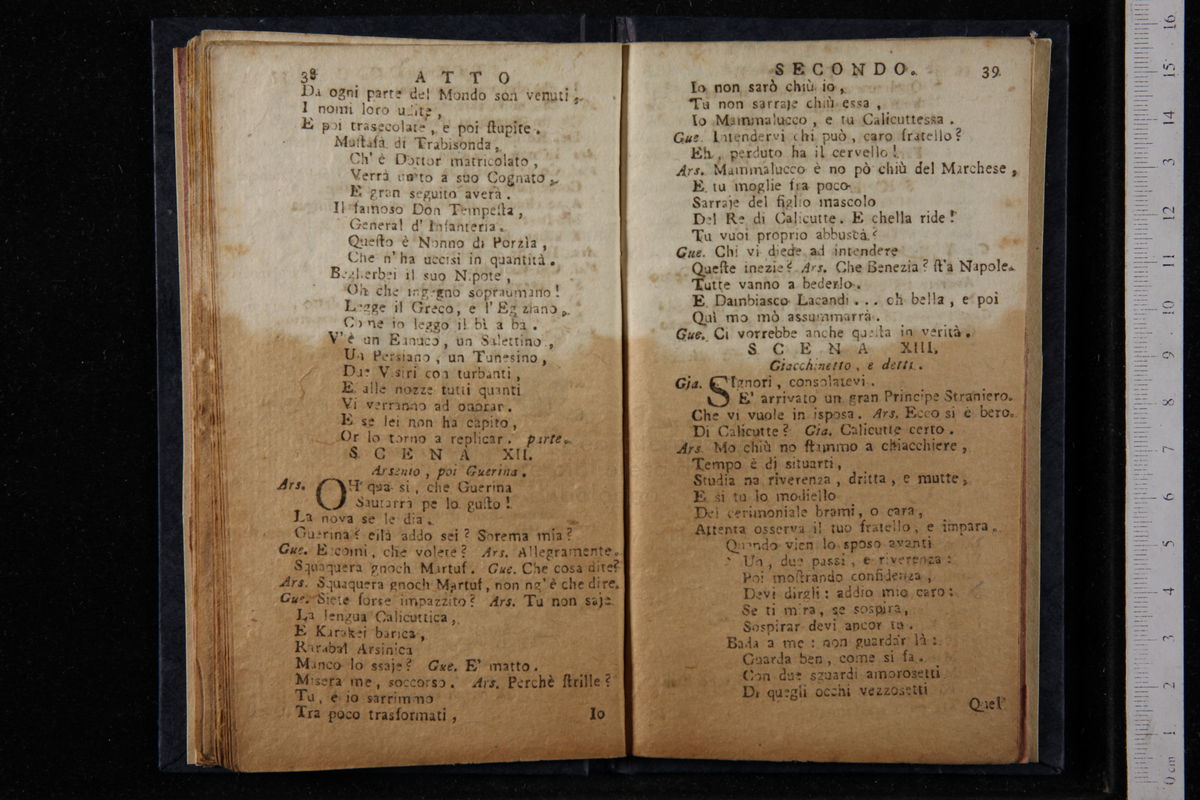 38 ATTO
Da ogni parte del Mondo son venuti,
I nomi loro udite,
E poi trasecolate, e poi stupite.
Mustafà di Trabisonda,
Ch' è Dottor matricolato,
Verrà unito a suo Cognato,
E gran seguito averà.
Il famoso Don Tempesta,
General d' Infanteria.
Questo è Nonno di Porzia,
Che n' ha uccisi in quantità.
Beglierbei il suo Nipote,
Oh che ingegno sopraumano!
Legge il Greco, e l' Egiziano,
Come io leggo il bì a ba.
V' è un Eunuco, un Salettino,
Un Persiano, un Tunesino,
Due Visiri con turbanti,
E alle nozze tutti quanti
Vi verranno ad onorar.
E se lei non ha capito,
Or lo torno a replicar. parte.
SCENA XII.
Arsenio, poi Guerina.
Ars. OH' qua si, che Guerina
Sautarrà pe lo gusto!
La nova se le dia.
Guerina? eilà addo sei? Sorema mia?
Gue. Eccomi, che volete? Ars. Allegramente.
Squaquera gnoch Martuf. Gue. Che cosa dite?
Ars. Squaquera gnoch Martuf, non ng' è che dire.
Gue. Siete forse impazzito? Ars. Tu non saje
La lengua Calicuttica,
E Karakei barica,
Rarabal Arsinica
Manco lo ssaje? Gue. E' matto.
Misera me, soccorso. Ars. Perchè strille?
Tu, e io sarrimmo
Tra poco trasformati,
Io
SECONDO. 39
Io non sarò chiù io,
Tu non sarraje chiù essa,
Io Mammalucco, e tu Calicuttessa.
Gue. Intendervi chi può, caro fratello?
Eh, perduto ha il cervello!
Ars. Mammalucco è no pò chiù del Marchese,
E tu moglie fra poco
Sarraje del figlio mascolo
Del Re di Calicutte. E chella ride!
Tu vuoi proprio abbuscà?
Gue. Chi vi diede ad intendere
Queste inezie? Ars. Che Benezia? st'a Napole.
Tutte vanno a bederlo.
E Dambiasco Lacandi... oh bella, e poi
Quì mo mò assummarrà.
Gue. Ci vorrebbe anche questa in verità.
SCENA XIII.
Giacchinetto, e detti.
Gia. SIgnori, consolatevi.
E' arrivato un gran Principe Straniero.
Che vi vuole in isposa. Ars. Ecco si è bero.
Di Calicutte? Gia. Calicutte certo.
Ars. Mo chiù no stammo a chiacchiere,
Tempo è di situarti,
Studia na riverenza, dritta, e mutte,
E si tu lo modiello
Del cerimoniale brami, o cara,
Attenta osserva il tuo fratello, e impara.
Quando vien lo sposo avanti
Un, due passi, e riverenza:
Poi mostrando confidenza,
Devi dirgli: addio mio caro:
Se ti mira, se sospira,
Sospirar devi ancor tu.
Bada a me: non guardar là:
Guarda ben, come si fa.
Con due sguardi amorosetti
Di quegli occhi vezzosetti
Quel